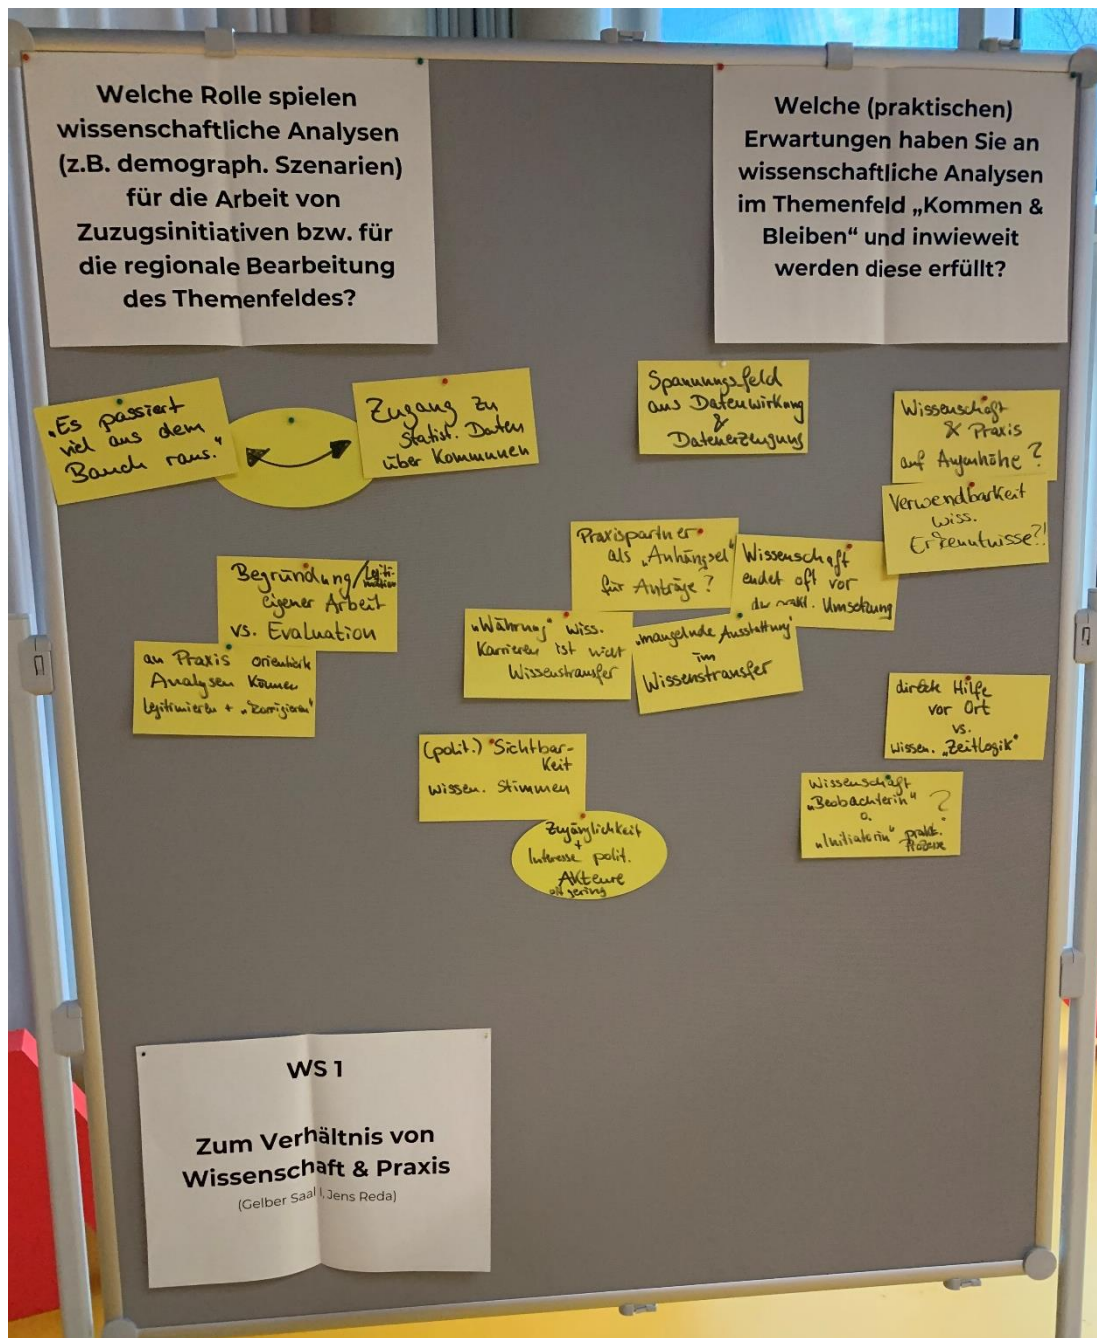 Welche Rolle spielen
wissenschaftliche Analysen
(z.B. demograph. Szenarien)
für die Arbeit von
Zuzugsinitiativen bzw. für
die regionale Bearbeitung
des Themenfeldes?
Welche (praktischen)
Erwartungen haben Sie an
wissenschaftliche Analysen
im Themenfeld „Kommen &
Bleiben“ und inwieweit
werden diese erfüllt?
„Es passiert
viel aus dem
Bauch raus.“
Zugang zu
Statist. Daten
über Kommunen
Spannungsfeld
aus Datenwirkung
&
Datenerzeugung
Wissenschaft
& Praxis
auf Augenhöhe?
Verwendbarkeit
wiss.
Erkenntnisse?!
Praxispartner
als „Anhängsel“
für Anträge?
Wissenschaft
endet oft vor
der prakt. Umsetzung
Begründung/Legitimation
eigener Arbeit
vs. Evaluation
an Praxis orientierte
Analysen können
legitimieren + „korrigieren“
„Währung“ wiss.
Karrieren ist nicht
Wissenstransfer
„mangelnde Ausstattung“
im
Wissenstransfer
direkte Hilfe
vor Ort
vs.
wissen. „Zeitlogik“
(polit.) Sichtbar-
keit
wissen. Stimmen
Zugänglichkeit
+
Interesse polit.
Akteure
oft gering
Wissenschaft
„Beobachterin“ ?
o.
„Initiatorin“ prakt.
Prozesse
WS 1
Zum Verhältnis von
Wissenschaft & Praxis
(Gelber Saal I, Jens Reda)